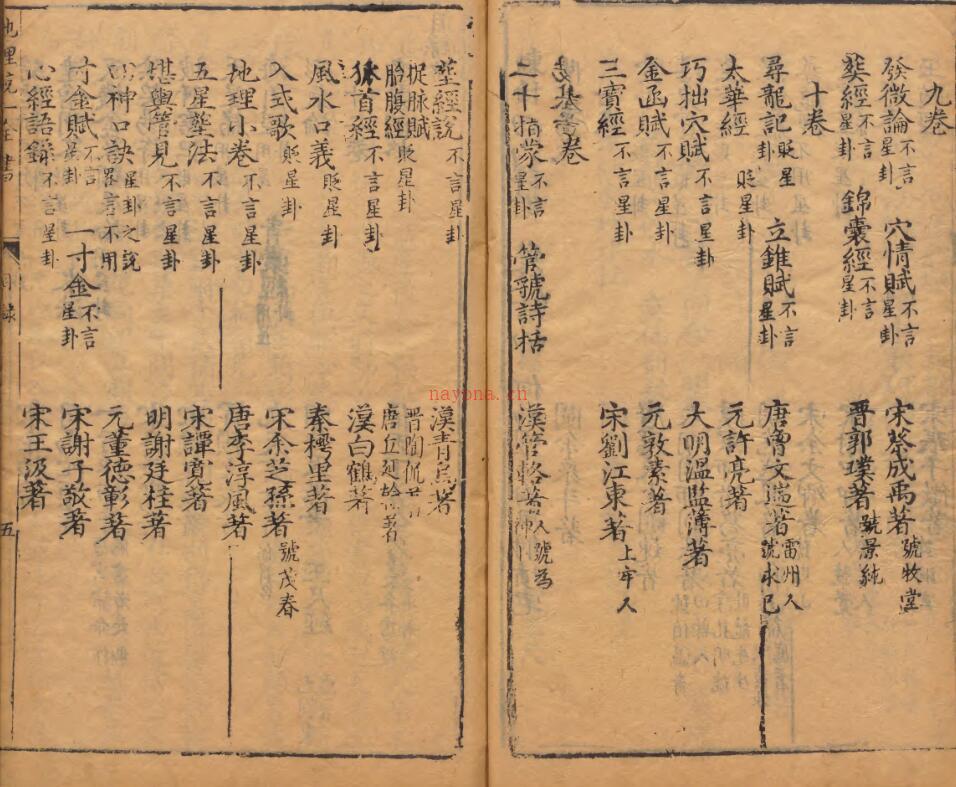 九卷
發微論不言星卦 穴情賦不言星卦 宋蔡成禹著號牧堂
葬經不言星卦 錦囊經不言星卦 晋郭璞著號景純
十卷
尋龍記貶星卦 立錐賦不言星卦 唐曾文遄著雷州人號求已
太華經貶星卦 元許亮著
巧拙穴賦不言星卦 大明溫監簿著
金函賦不言星卦 元敦素著
三寶經不言星卦 宋劉江東著上牢人
卷
二十指蒙不言星卦 管虢詩括 漢管輅著人號為神
葬經說不言星卦 漢青烏著
捉脉賦貶星卦 晋陶侃
胎腹經 唐丘延翰著
狐首經不言星卦 漢白鶴著
風水口義貶星卦 秦樗里著
入式歌貶星卦 宋余芝孫著號茂春
地理小卷不言星卦 唐李淳風著
五星葬法不言星卦 宋譚寬著
堪輿管見不言星卦 明謝廷桂著
神口訣畧言不用星卦之說 元董德彰著
寸金賦不言星卦 一寸金不言星卦 宋謝子敬著
心經語錄不言星卦 宋王伋著
地理統一全書
目錄
五
nayona.cn